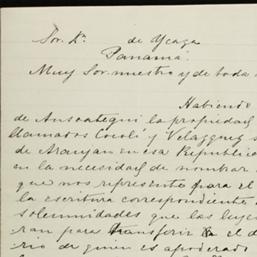 Sor. Dn. de Ycaza
Panama.
Muy Sor. nuestro y de toda
Habiendo
de Anzoategui la propiedad
llamados Cocolí y Velazquez
de Arraijan en esa Republica
en la necesidad de nombrar
que nos represente para el
la escritura correspondiente
solemnidades que las leyes
ran para transferir el d
rio de quien es apoderado